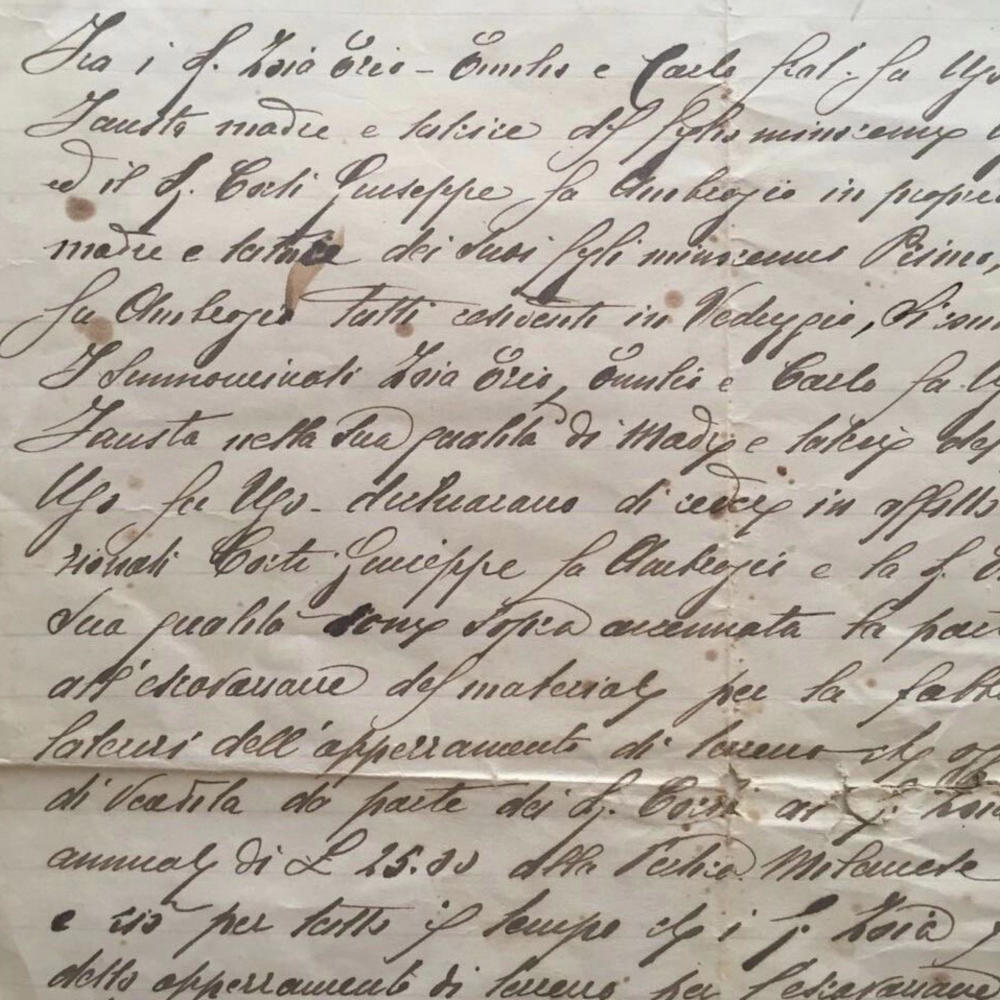 Fra i S. Zoia Ezio - Emilio e Carlo frat. fu Ugo
Fausta madre e tutrice del figlio minorenne
ed il S. Corti Giuseppe fu Ambrogio in proprio
madre e tutrice dei suoi figli minorenni Primo,
fu Ambrogio tutti residenti in Veduggio, si
I Summovinati Zoia Ezio, Emilio e Carlo fu
Fausta nella sua qualità di Madre e tutrice del
Ugo fu Ugo - dichiarano di cedere in affitto
zionati Corti Giuseppe fu Ambrogio e la S.
sua qualità come sopra accennata la parte
all'escavazione del materiale per la fabb
laterizi dell'appezzamento di terreno che
di Vendita da parte dei S. Corti ai S. Zoia
annuale di L 25.30 alla Pertica Milanese
e ciò per tutto il tempo che i S. Zoia
dello appezzamento di terreno per l'escavazione